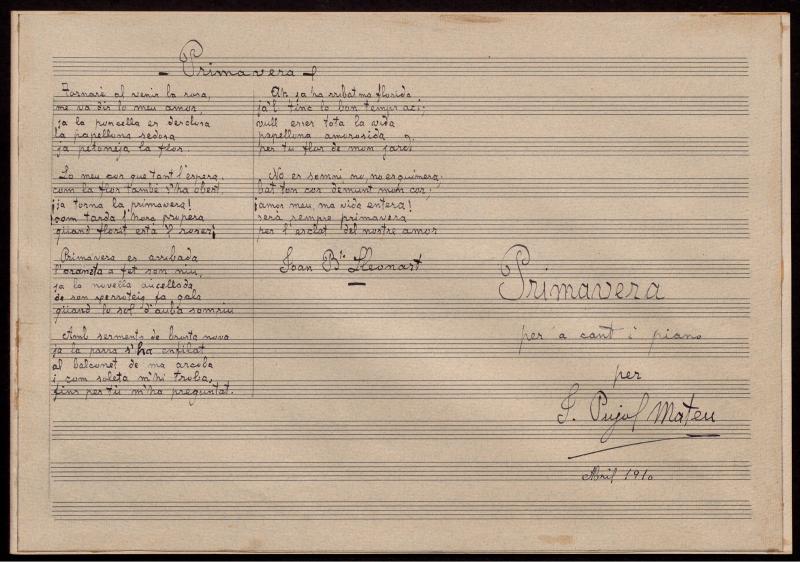 - Primavera -
Tornaré al venir la rosa,
me va dir lo meu amor,
ja la poncella es desclosa
la papellona sedosa
ja petoneja la flor.
Lo meu cor que tant l'espera,
com la flor també s'ha obert,
¡ja torna la primavera!
¡com tarda l'hora propera
quand florit està 'l roser!
Primavera es arribada
l'oraneta a fet son niu,
ja la novella aucellada
de son perroteig fa gala
quand lo sol d'auba somriu
Amb serments de brosta nova
ja la parra s'ha enfilat
al balconet de ma arcoba
i, com soleta m'hi troba,
fins per tu m'ha preguntat.
Ah ja ha arribat ma florida
ja'l tinc lo bon temps ací;
vull esser tota la vida
papellona amorosida
per tu flor de mon jardí
No es somni no, no es quimera;
bat ton cor demunt mon cor;
¡amor meu, ma vida entera!
serà sempre primavera
per l'esclat del nostre amor
Joan Bta Lleonart
Primavera
per a cant i piano
per
F. Pujol Mateu
Abril 1910